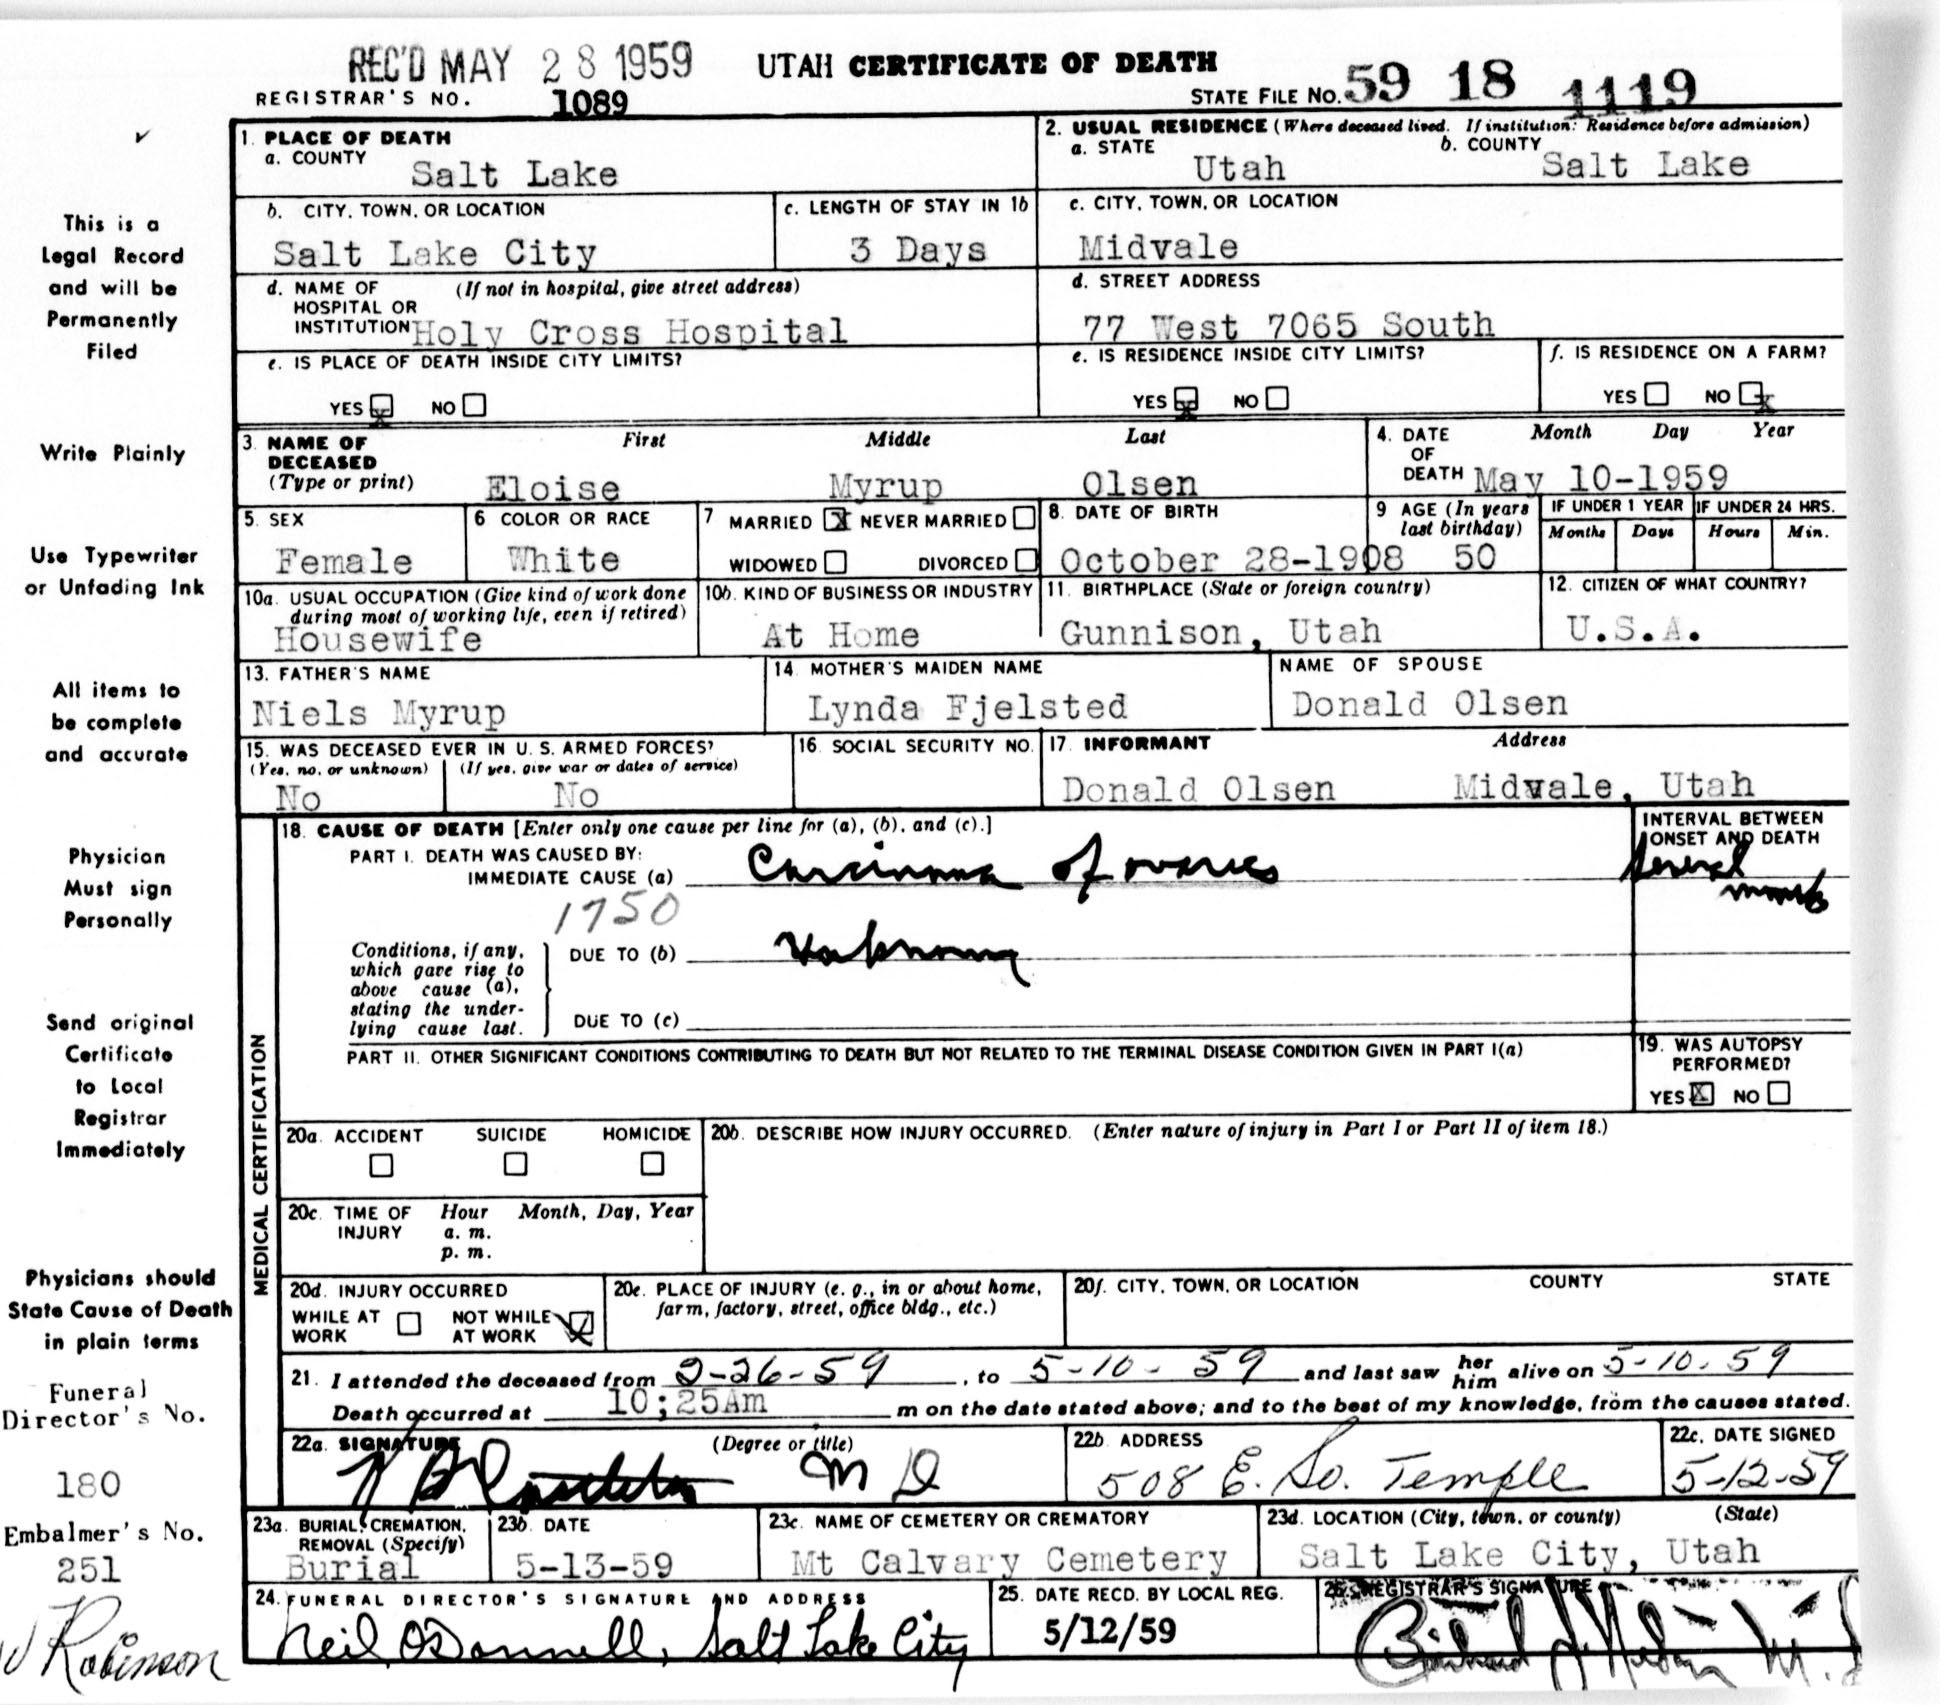 REC'D MAY 28 1959 UTAH CERTIFICATE OF DEATH
REGISTRAR'S NO. 1089 STATE FILE NO. 59 18 1119
1. PLACE OF DEATH
a. COUNTY
Salt Lake
2. USUAL RESIDENCE (Where deceased lived. If institution: Residence before admission)
a. STATE
Utah
b. COUNTY
Salt Lake
b. CITY, TOWN, OR LOCATION
Salt Lake City
c. LENGTH OF STAY IN 1b
3 Days
c. CITY, TOWN, OR LOCATION
Midvale
d. NAME OF (If not in hospital, give street address)
HOSPITAL OR
INSTITUTION Holy Cross Hospital
d. STREET ADDRESS
77 West 7065 South
e. IS PLACE OF DEATH INSIDE CITY LIMITS?
YES X NO
e. IS RESIDENCE INSIDE CITY LIMITS?
YES X NO
f. IS RESIDENCE ON A FARM?
YES NO X
3. NAME OF First Middle Last
DECEASED
(Type or print) Eloise Myrup Olsen
4. DATE Month Day Year
OF
DEATH May 10-1959
5. SEX
Female
6 COLOR OR RACE
White
7 MARRIED X NEVER MARRIED
WIDOWED DIVORCED
8. DATE OF BIRTH
October 28-1908
9 AGE (In years
last birthday)
50
IF UNDER 1 YEAR IF UNDER 24 HRS.
Months Days Hours Min.
10a. USUAL OCCUPATION (Give kind of work done
during most of working life, even if retired)
Housewife
10b. KIND OF BUSINESS OR INDUSTRY
At Home
11. BIRTHPLACE (State or foreign country)
Gunnison, Utah
12. CITIZEN OF WHAT COUNTRY?
U.S.A.
13. FATHER'S NAME
Niels Myrup
14. MOTHER'S MAIDEN NAME
Lynda Fjelsted
NAME OF SPOUSE
Donald Olsen
15. WAS DECEASED EVER IN U. S. ARMED FORCES?
(Yes, no, or unknown) (If yes, give war or dates of service)
No No
16. SOCIAL SECURITY NO.
17. INFORMANT Address
Donald Olsen Midvale, Utah
MEDICAL CERTIFICATION
18. CAUSE OF DEATH [Enter only one cause per line for (a), (b), and (c).]
PART I. DEATH WAS CAUSED BY:
IMMEDIATE CAUSE (a) Carcinoma of ovaries
1750
INTERVAL BETWEEN
ONSET AND DEATH
Several
months
Conditions, if any,
which gave rise to
above cause (a),
stating the under-
lying cause last.
DUE TO (b) Unknown
DUE TO (c)
PART II. OTHER SIGNIFICANT CONDITIONS CONTRIBUTING TO DEATH BUT NOT RELATED TO THE TERMINAL DISEASE CONDITION GIVEN IN PART I(a)
19. WAS AUTOPSY
PERFORMED?
YES X NO
20a. ACCIDENT SUICIDE HOMICIDE
20b. DESCRIBE HOW INJURY OCCURRED. (Enter nature of injury in Part I or Part II of item 18.)
20c. TIME OF Hour Month, Day, Year
INJURY a. m.
p. m.
20d. INJURY OCCURRED
WHILE AT NOT WHILE
WORK AT WORK
20e. PLACE OF INJURY (e. g., in or about home,
farm, factory, street, office bldg., etc.)
20f. CITY, TOWN, OR LOCATION COUNTY STATE
21. I attended the deceased from 2-26-59, to 5-10-59 and last saw her him alive on 5-10-59
Death occurred at 10;25Am m on the date stated above; and to the best of my knowledge, from the causes stated.
22a. SIGNATURE (Degree or title)
M D
22b. ADDRESS
508 E. So. Temple
22c. DATE SIGNED
5-12-59
23a. BURIAL, CREMATION,
REMOVAL (Specify)
Burial
23b. DATE
5-13-59
23c. NAME OF CEMETERY OR CREMATORY
Mt Calvary Cemetery
23d. LOCATION (City, town, or county) (State)
Salt Lake City, Utah
24. FUNERAL DIRECTOR'S SIGNATURE AND ADDRESS
Neil O'Donnell, Salt Lake City
25. DATE RECD. BY LOCAL REG.
5/12/59
26. REGISTRAR'S SIGNATURE
This is a
Legal Record
and will be
Permanently
Filed
Write Plainly
Use Typewriter
or Unfading Ink
All items to
be complete
and accurate
Physician
Must sign
Personally
Send original
Certificate
to Local
Registrar
Immediately
Physicians should
State Cause of Death
in plain terms
Funeral
Director's No.
180
Embalmer's No.
251
W Robinson